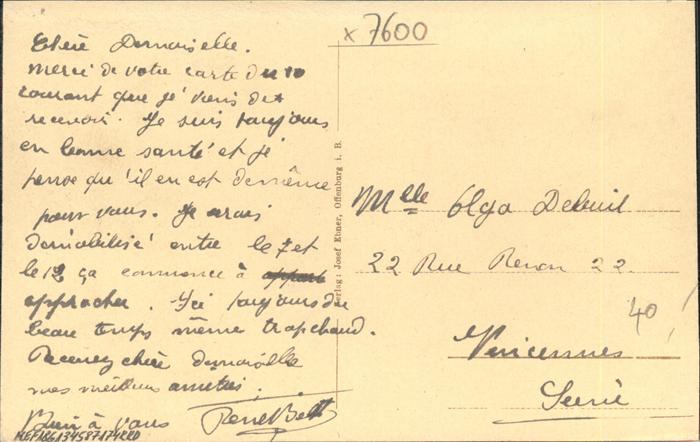 x 7600
Chère Demoiselle.
Merci de votre carte du 10
courant que je viens de
recevoir. Je suis toujours
en bonne santé et je
pense qu'il en est de même
pour vous. Je serais
démobilisé entre le 7 et
le 12 ça commence à
approcher. Ici toujours du
beau temps même trop chaud.
Recevez chère demoiselle
mes meilleurs amitiés.
Bien à vous
René
Verlag: Josef Ebner, Offenburg i. B.
Mlle Olga Deleuil
22 Rue Renon 22
40
Vincennes
Seine